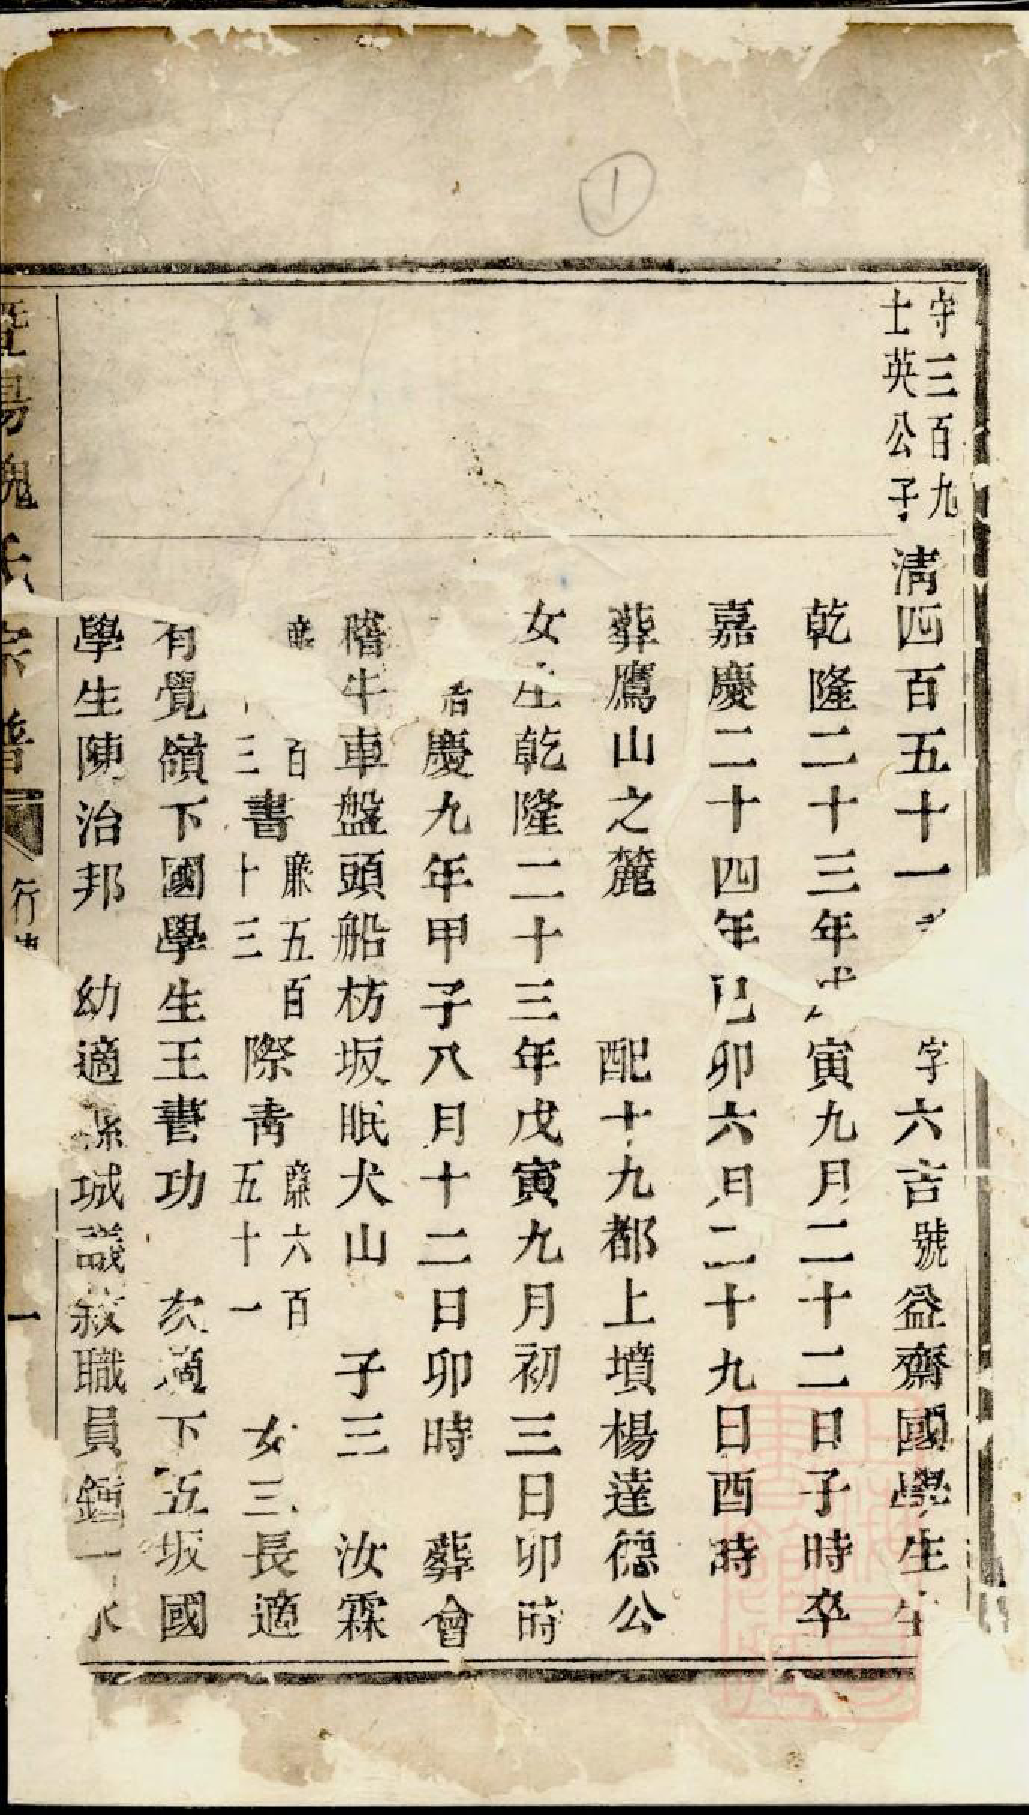 守三百九
士英公子
清四百五十一 字六吉號益齋國學生生
乾隆二十三年戊寅九月二十二日子時卒
嘉慶二十四年己卯六月二十九日酉時
葬鷹山之麓 配十九都上墳楊達德公
女生乾隆二十三年戊寅九月初三日卯時
慶九年甲子八月十二日卯時 葬會
稽牛車盤頭船枋坂眠犬山 子三 汝霖
廉 百
三 書 廉五百
十三 際青 廉六百
五十一 女三長適
有覺嶺下國學生王書功 次適下五坂國
學生陳治邦 幼適 城議敘職員鍾一
暨陽魏氏宗譜 行
一
①